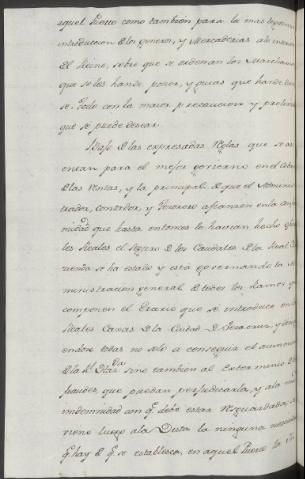 aquel Puerto como tambien para la mas legitima
introduccion de los generos, y Mercaderias alo interior
del Reino, sobre que se ordenan los Marchamos
que se les han de poner, y guias que han de
se. Todo con la maior precaucion y
que se puede desear.
Bajo de las expresadas Reglas que se
para el mejor govierno en el
de las Rentas, y la principal de que el Adminis
trador, contador, y Tesorero afianzen en la
midad que hasta entonces lo havian hecho ofici
les Reales el seguro de los Caudales de la Real
cienda se ha estado y está governando la Ad
ministracion general de todos los ramos que
componen el Erario que se introduce en las
Reales Caxas de la Ciudad de Veracruz, y
endose todas no solo a conseguir el aumento
de la Rl. sino tambien al exterminio de
fraudes, que puedan perjudicarla, y ala
indemnidad con qe. debe estar resguardada,
viene luego ala Vista la ninguna necesidad
qe. hay de qe. se establesca, en aquel Puerto la